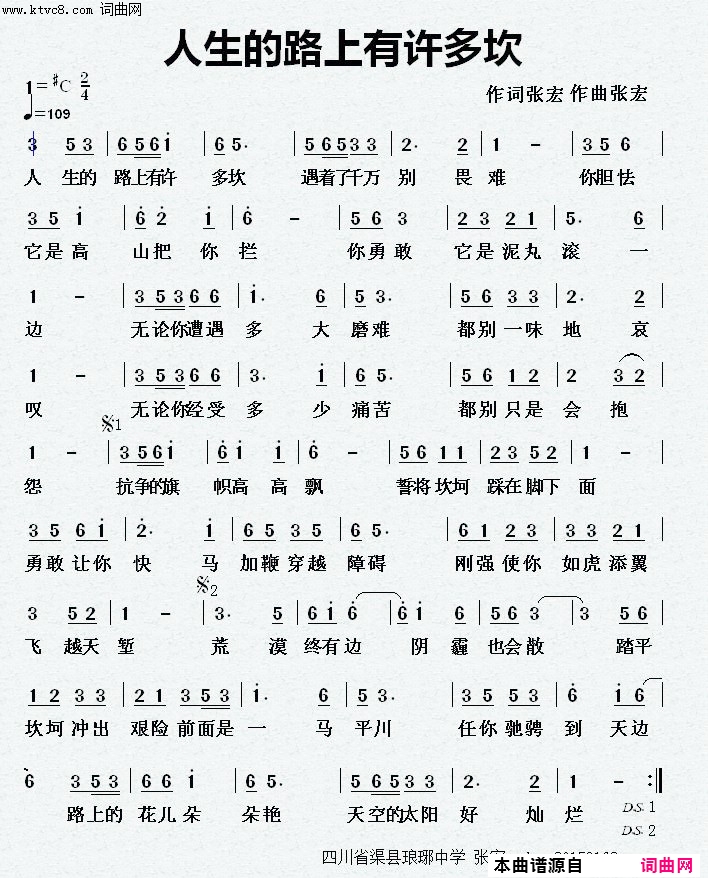 www.ktvc8.com 词曲网
人生的路上有许多坎
1=#C 2/4
♩=109
作词张宏 作曲张宏
3 5 3 | 6 5 6 1 | 6 5. | 5 6 5 3 3 | 2. 2 | 1 - | 3 5 6 |
人 生的 路上有许 多坎 遇着了千万 别 畏 难 你胆怯
3 5 1 | 6 2 1 | 6 - | 5 6 3 | 2 3 2 1 | 5. 6 |
它是高 山把 你 拦 你勇敢 它是泥丸 滚 一
1 - | 3 5 3 6 6 | 1. 6 | 5 3. | 5 6 3 3 | 2. 2 |
边 无论你遭遇 多 大 磨难 都别一味 地 哀
1 - | 3 5 3 6 6 | 3. 1 | 6 5. | 5 6 1 2 | 2 3 2 |
叹 无论你经受 多 少 痛苦 都别只是 会 抱
𝄋1
1 - | 3 5 6 1 | 6 1 1 | 6 - | 5 6 1 1 | 2 3 5 2 | 1 - |
怨 抗争的旗 帜高 高 飘 誓将坎坷 踩在脚下 面
3 5 6 1 | 2. 1 | 6 5 3 5 | 6 5. | 6 1 2 3 | 3 3 2 1 |
勇敢让你 快 马 加鞭穿越 障碍 刚强使你 如虎添翼
𝄋2
3 5 2 | 1 - | 3. 5 | 6 1 6 | 6 1 6 | 5 6 3 | 3 5 6 |
飞 越天 堑 荒 漠 终有边 阴 霾 也会散 踏平
1 2 3 3 | 2 1 3 5 3 | 1. 6 | 5 3. | 5 5 5 3 | 6 1 6 |
坎坷冲出 艰险前面是 一 马 平川 任你驰骋 到 天边
6 3 5 3 | 6 6 1 | 6 5. | 3 5 5 5 3 | 2. 2 | 1 - :||
路上的 花儿朵 朵艳 天空的太阳 好 灿 烂 D.S. 1
D.S. 2
四川省渠县琅琊中学 张宏
本曲谱源自 词曲网